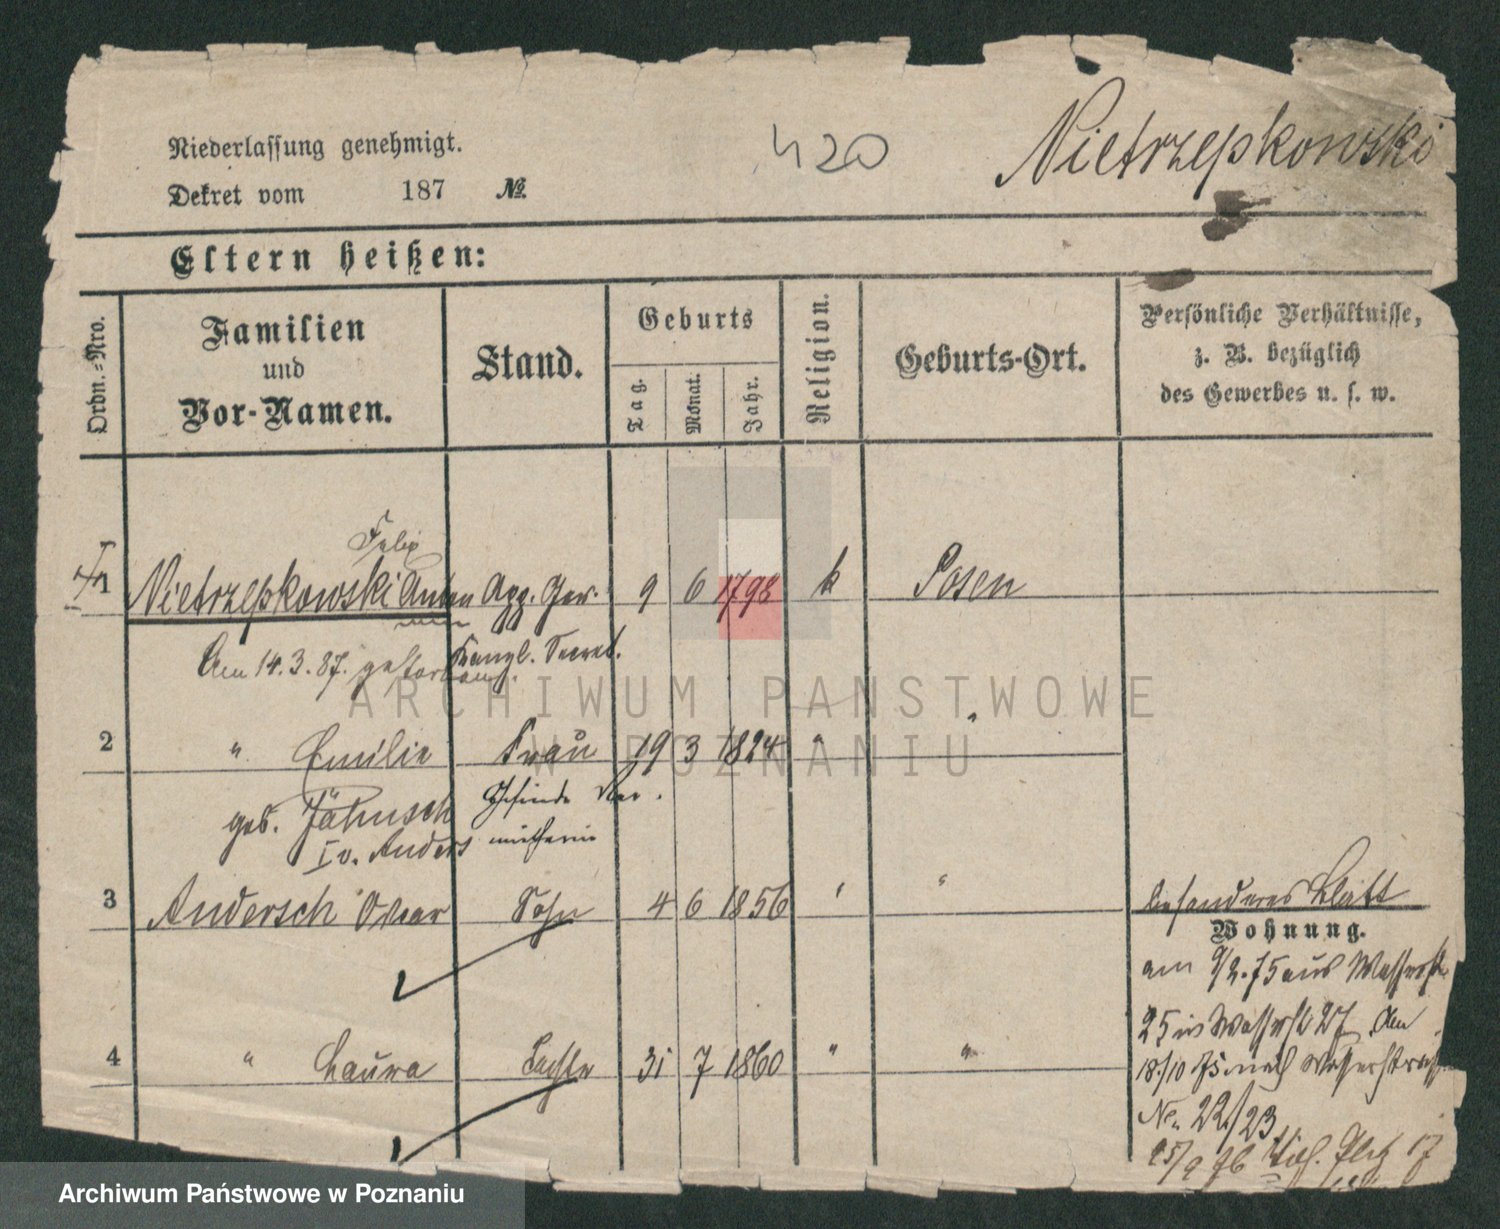 Niederlassung genehmigt.
420
Nietrzepkowski
Dekret vom 187 №.
Eltern heißen:
Ordn.-Nro.
Familien
und
Vor-Namen.
Stand.
Geburts
Tag.
Monat.
Jahr.
Religion.
Geburts-Ort.
Persönliche Verhältnisse,
z. B. bezüglich
des Gewerbes u. s. w.
Felix
1 Nietrzepkowski Anton App. Ger. 9 6 1798 k Posen
Am 14.3.87. gestorben. Kanzl. Secret.
ARCHIWUM PAŃSTWOWE
W POZNANIU
2 " Emilie Frau 19 3 1824 " "
geb. Jähnsch Gesinde Ver.
I v. Anders mietherin
3 Andersch Oscar Sohn 4 6 1856 " "
besonderes Blatt
Wohnung.
am 9/2.75 aus Wasserstr.
25 in Wasserstr 27 Am
4 " Laura Tochter 31 7 1860 " "
18./10 75 nach Wasserstraße
No. 22/23
25/9 76 17
Archiwum Państwowe w Poznaniu